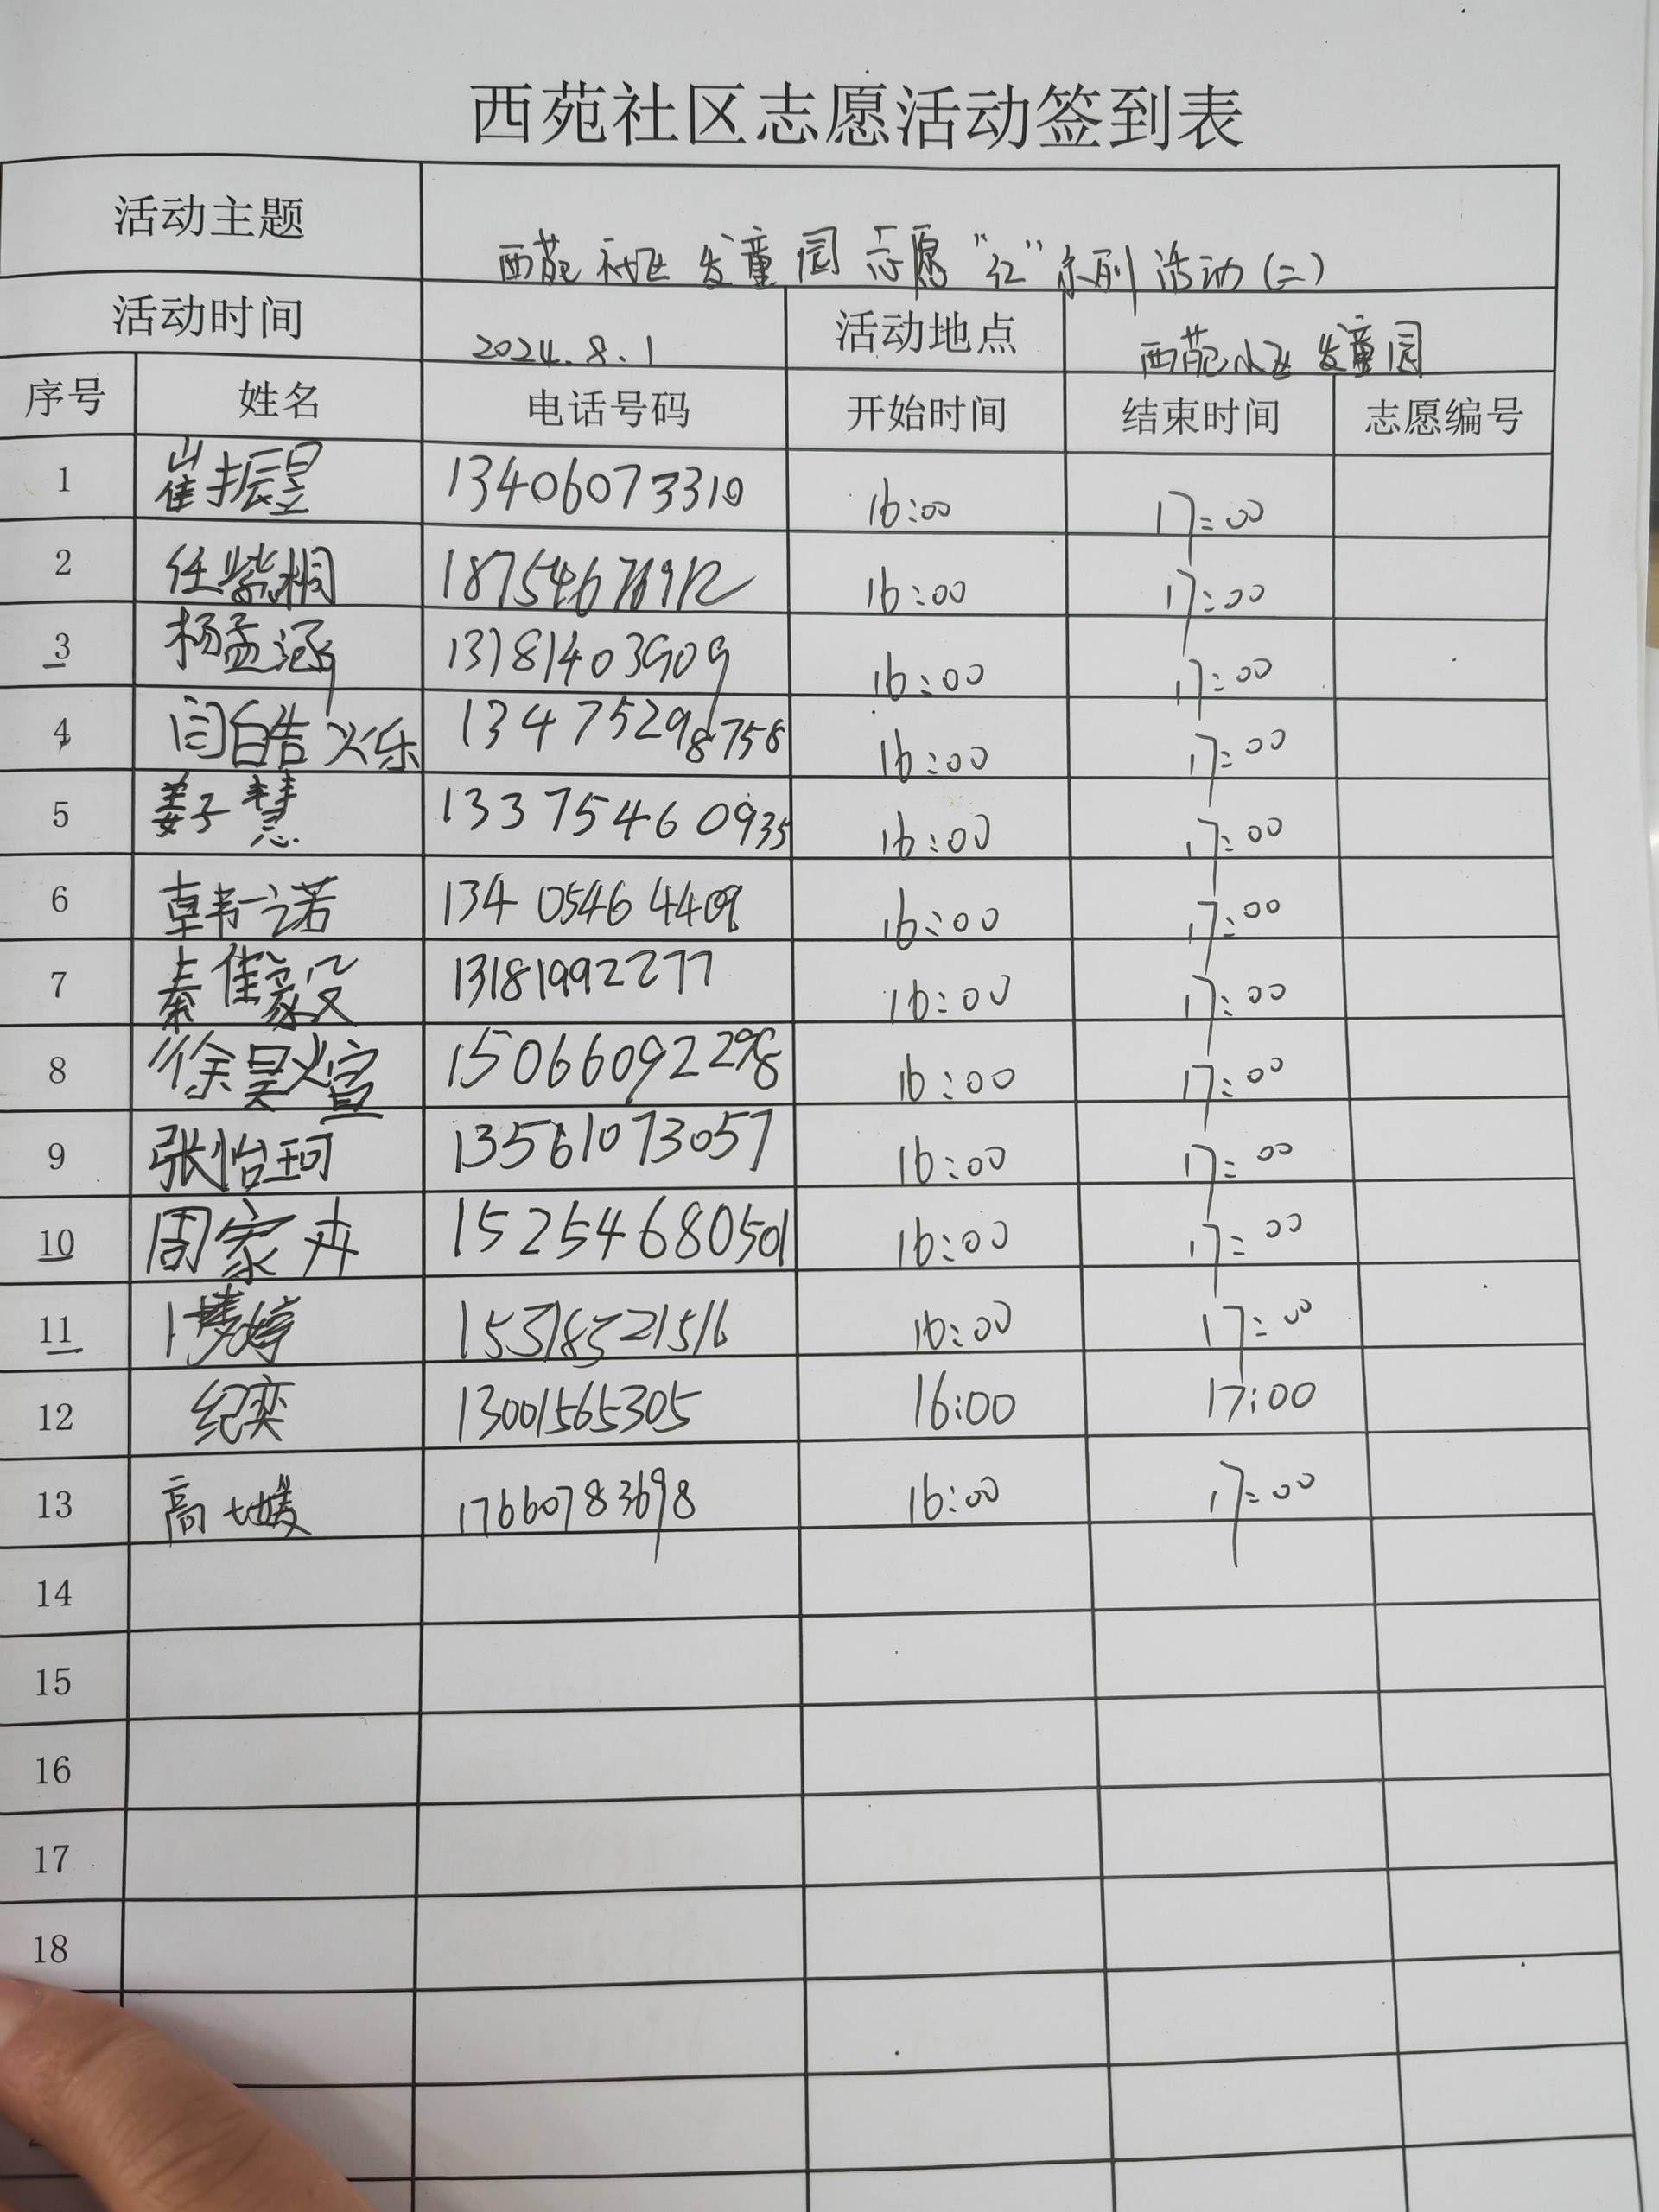 西苑社区志愿活动签到表
活动主题 西苑社区发童园志愿"红"系列活动(二)
活动时间 2024.8.1 活动地点 西苑小区发童园
序号 姓名 电话号码 开始时间 结束时间 志愿编号
1 崔振昱 13406073310 16:00 17:00
2 任紫桐 16:00 17:00
3 杨孟涵 13181403909 16:00 17:00
4 闫皓烁 13475298758 16:00 17:00
5 姜子慧 13375460935 16:00 17:00
6 韩一诺 13405464409 16:00 17:00
7 秦佳毅 13181992277 16:00 17:00
8 徐昊煊 15066092298 16:00 17:00
9 张怡珂 13561073057 16:00 17:00
10 周家卉 15254680501 16:00 17:00
11 卜梦婷 15318521516 16:00 17:00
12 纪奕 13001565305 16:00 17:00
13 高媛 17660783698 16:00 17:00
14
15
16
17
18